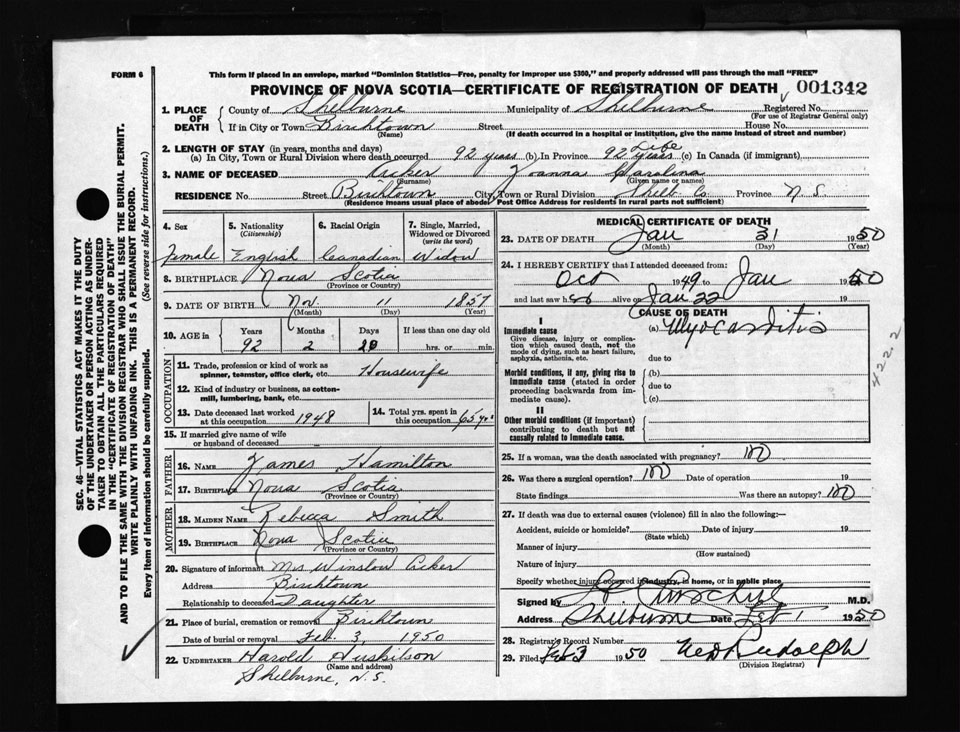 FORM 6
This form if placed in an envelope, marked "Dominion Statistics—Free, penalty for improper use $300," and properly addressed will pass through the mail "FREE"
PROVINCE OF NOVA SCOTIA—CERTIFICATE OF REGISTRATION OF DEATH 001342
1. PLACE OF DEATH
County of Shelburne Municipality of Shelburne Registered No.
(For use of Registrar General only)
If in City or Town Birchtown Street House No.
(Name) (If death occurred in a hospital or institution, give the name instead of street and number)
2. LENGTH OF STAY (in years, months and days)
(a) In City, Town or Rural Division where death occurred 92 years (b) In Province 92 years Life (c) In Canada (if immigrant)
3. NAME OF DECEASED Acker Joanna Carolina
(Surname) (Given name or names)
RESIDENCE No. Street Birchtown City, Town or Rural Division Shelb. Co. Province N.S.
(Residence means usual place of abode. Post Office Address for residents in rural parts not sufficient)
4. Sex
Female
5. Nationality
(Citizenship)
English
6. Racial Origin
Canadian
7. Single, Married, Widowed or Divorced
(write the word)
Widow
8. BIRTHPLACE Nova Scotia
(Province or Country)
9. DATE OF BIRTH Nov. 11 1857
(Month) (Day) (Year)
10. AGE in Years Months Days If less than one day old
92 2 20 hrs. or min.
OCCUPATION
11. Trade, profession or kind of work as spinner, teamster, office clerk, etc. Housewife
12. Kind of industry or business, as cotton-mill, lumbering, bank, etc.
13. Date deceased last worked at this occupation 1948
14. Total yrs. spent in this occupation 65 yrs
15. If married give name of wife or husband of deceased
FATHER
16. NAME James Hamilton
17. BIRTHPLACE Nova Scotia
(Province or Country)
MOTHER
18. MAIDEN NAME Rebecca Smith
19. BIRTHPLACE Nova Scotia
(Province or Country)
20. Signature of informant Mrs Winslow Acker
Address Birchtown
Relationship to deceased Daughter
21. Place of burial, cremation or removal Birchtown
Date of burial or removal Feb. 3, 1950
22. UNDERTAKER Harold Huskilson
(Name and address)
Shelburne, N.S.
MEDICAL CERTIFICATE OF DEATH
23. DATE OF DEATH Jan 31 1950
(Month) (Day) (Year)
24. I HEREBY CERTIFY that I attended deceased from:
Oct 1949 to Jan 1950
and last saw h alive on Jan 22 19
CAUSE OF DEATH
I
Immediate cause
Give disease, injury or complication which caused death, not the mode of dying, such as heart failure, asphyxia, asthenia, etc.
(a) Myocarditis
due to
Morbid conditions, if any, giving rise to immediate cause (stated in order proceeding backwards from immediate cause).
(b)
due to
(c)
II
Other morbid conditions (if important) contributing to death but not causally related to immediate cause.
4222
25. If a woman, was the death associated with pregnancy? no
26. Was there a surgical operation? no Date of operation 19
State findings Was there an autopsy? no
27. If death was due to external causes (violence) fill in also the following:—
Accident, suicide or homicide? Date of injury 19
(State which)
Manner of injury
(How sustained)
Nature of injury
Specify whether injury occurred in industry, in home, or in public place
Signed by M.D.
Address Shelburne Date Feb 1 1950
28. Registrar's Record Number
29. Filed Feb 3 1950 Rudolph
(Division Registrar)
SEC. 46—VITAL STATISTICS ACT MAKES IT THE DUTY OF THE UNDERTAKER OR PERSON ACTING AS UNDERTAKER TO OBTAIN ALL THE PARTICULARS REQUIRED IN THE "CERTIFICATE OF REGISTRATION OF DEATH" AND TO FILE THE SAME WITH THE DIVISION REGISTRAR WHO SHALL ISSUE THE BURIAL PERMIT.
WRITE PLAINLY WITH UNFADING INK. THIS IS A PERMANENT RECORD.
Every item of information should be carefully supplied. (See reverse side for instructions.)